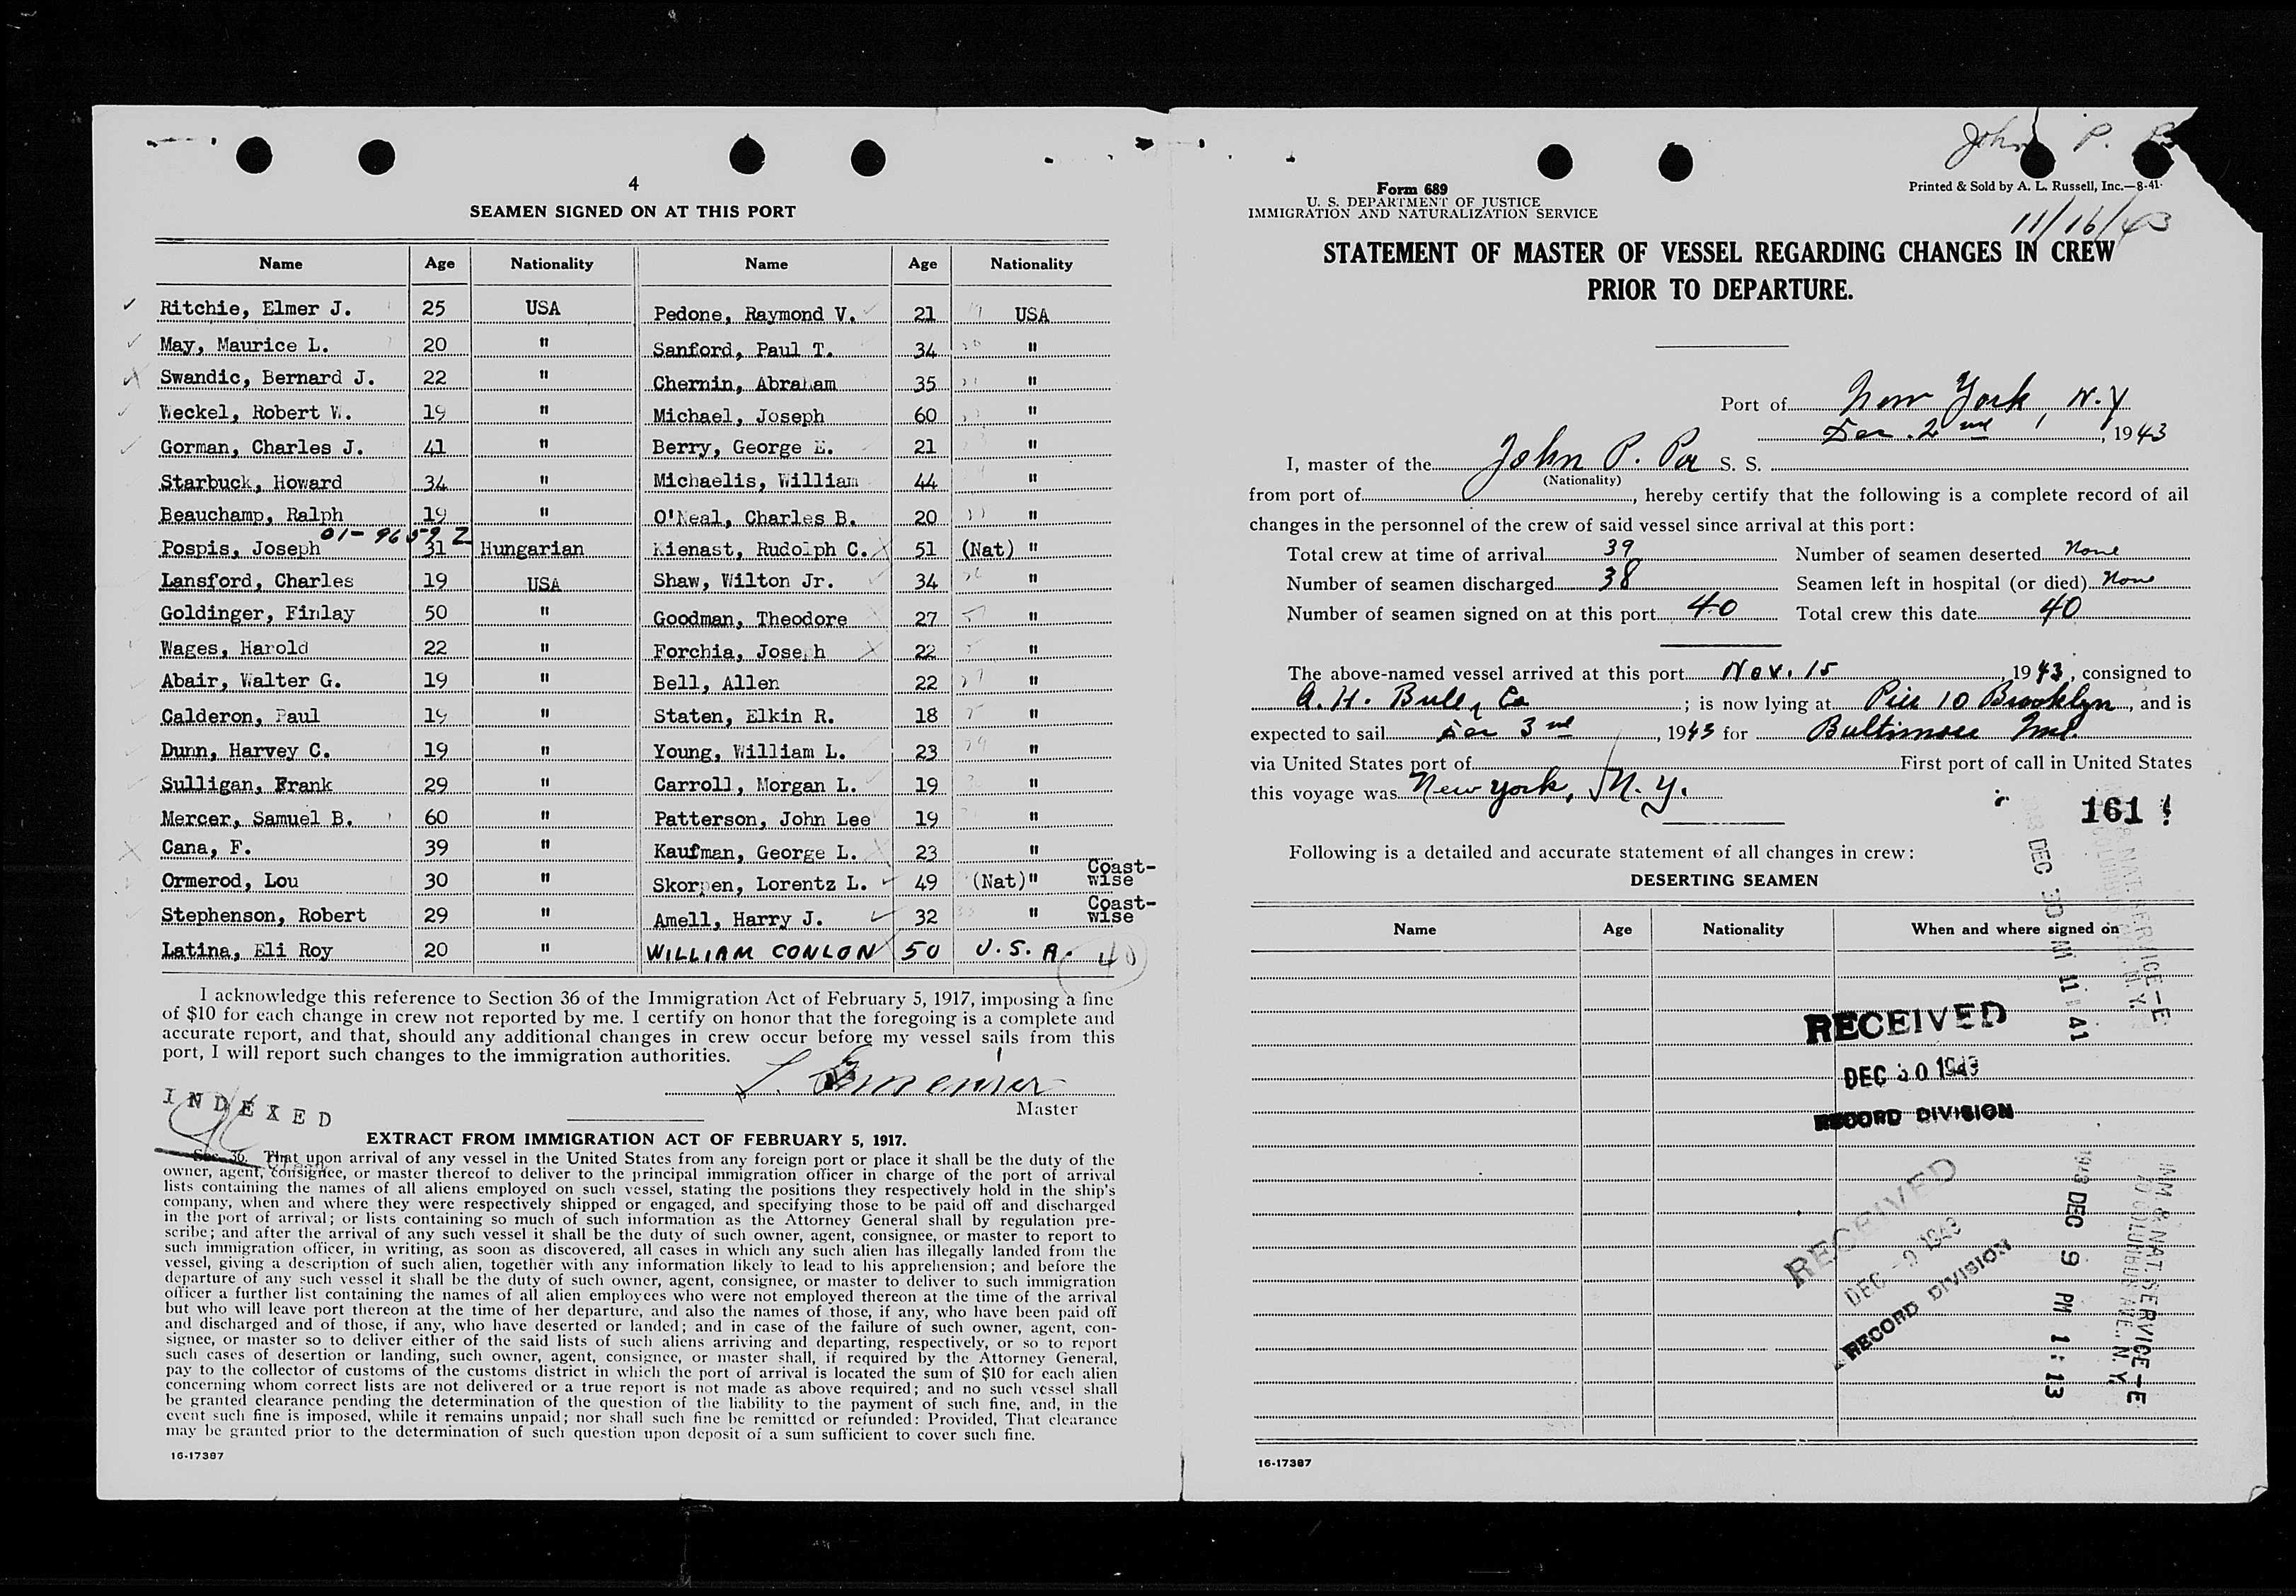 4
SEAMEN SIGNED ON AT THIS PORT
Name Age Nationality Name Age Nationality
Ritchie, Elmer J. 25 USA Pedone, Raymond V. 21 USA
May, Maurice L. 20 " Sanford, Paul T. 34 "
Swandic, Bernard J. 22 " Chernin, Abraham 35 "
Weckel, Robert W. 19 " Michael, Joseph 60 "
Gorman, Charles J. 41 " Berry, George E. 21 "
Starbuck, Howard 34 " Michaelis, William 44 "
Beauchamp, Ralph 19 " O'Neal, Charles B. 20 "
01-96 5-9 Z
Pospis, Joseph 31 Hungarian Kienast, Rudolph C. 51 (Nat) "
Lansford, Charles 19 USA Shaw, Wilton Jr. 34 "
Goldinger, Finlay 50 " Goodman, Theodore 27 "
Wages, Harold 22 " Forchia, Joseph 22 "
Abair, Walter G. 19 " Bell, Allen 22 "
Calderon, Paul 19 " Staten, Elkin R. 18 "
Dunn, Harvey C. 19 " Young, William L. 23 "
Sulligan, Frank 29 " Carroll, Morgan L. 19 "
Mercer, Samuel B. 60 " Patterson, John Lee 19 "
Cana, F. 39 " Kaufman, George L. 23 "
Ormerod, Lou 30 " Skorpen, Lorentz L. 49 (Nat)" Coast-wise
Stephenson, Robert 29 " Amell, Harry J. 32 " Coast-wise
Latina, Eli Roy 20 " WILLIAM CONLON 50 U.S.A. 40
I acknowledge this reference to Section 36 of the Immigration Act of February 5, 1917, imposing a fine
of $10 for each change in crew not reported by me. I certify on honor that the foregoing is a complete and
accurate report, and that, should any additional changes in crew occur before my vessel sails from this
port, I will report such changes to the immigration authorities.
Master
INDEXED
EXTRACT FROM IMMIGRATION ACT OF FEBRUARY 5, 1917.
Sec. 36. That upon arrival of any vessel in the United States from any foreign port or place it shall be the duty of the
owner, agent, consignee, or master thereof to deliver to the principal immigration officer in charge of the port of arrival
lists containing the names of all aliens employed on such vessel, stating the positions they respectively hold in the ship's
company, when and where they were respectively shipped or engaged, and specifying those to be paid off and discharged
in the port of arrival; or lists containing so much of such information as the Attorney General shall by regulation pre-
scribe; and after the arrival of any such vessel it shall be the duty of such owner, agent, consignee, or master to report to
such immigration officer, in writing, as soon as discovered, all cases in which any such alien has illegally landed from the
vessel, giving a description of such alien, together with any information likely to lead to his apprehension; and before the
departure of any such vessel it shall be the duty of such owner, agent, consignee, or master to deliver to such immigration
officer a further list containing the names of all alien employees who were not employed thereon at the time of the arrival
but who will leave port thereon at the time of her departure, and also the names of those, if any, who have been paid off
and discharged and of those, if any, who have deserted or landed; and in case of the failure of such owner, agent, con-
signee, or master so to deliver either of the said lists of such aliens arriving and departing, respectively, or so to report
such cases of desertion or landing, such owner, agent, consignee, or master shall, if required by the Attorney General,
pay to the collector of customs of the customs district in which the port of arrival is located the sum of $10 for each alien
concerning whom correct lists are not delivered or a true report is not made as above required; and no such vessel shall
be granted clearance pending the determination of the question of the liability to the payment of such fine, and, in the
event such fine is imposed, while it remains unpaid; nor shall such fine be remitted or refunded: Provided, That clearance
may be granted prior to the determination of such question upon deposit of a sum sufficient to cover such fine.
16-17387
John P.
Form 689
U. S. DEPARTMENT OF JUSTICE
IMMIGRATION AND NATURALIZATION SERVICE
Printed & Sold by A. L. Russell, Inc.—8-41
11/16/43
STATEMENT OF MASTER OF VESSEL REGARDING CHANGES IN CREW
PRIOR TO DEPARTURE.
Port of New York, N.Y
Dec. 2nd, 1943
I, master of the John P. Poe S. S.
(Nationality)
from port of , hereby certify that the following is a complete record of all
changes in the personnel of the crew of said vessel since arrival at this port:
Total crew at time of arrival 39 Number of seamen deserted None
Number of seamen discharged 38 Seamen left in hospital (or died) None
Number of seamen signed on at this port 40 Total crew this date 40
The above-named vessel arrived at this port Nov. 15, 1943, consigned to
A. H. Bull & Co ; is now lying at Pier 10 Brooklyn, and is
expected to sail Dec 3rd, 1943 for Baltimore Md.
via United States port of First port of call in United States
this voyage was New York, N.Y.
161
Following is a detailed and accurate statement of all changes in crew:
DESERTING SEAMEN
Name Age Nationality When and where signed on
1943 DEC 30 AM 11 41
RECEIVED
DEC 30 1943
RECORD DIVISION
RECEIVED
DEC -9 1943
RECORD DIVISION
1943 DEC 9 PM 1:13
IMM. & NAT. SERVICE-E
70 COLUMBUS AVE., N.Y.
16-17387